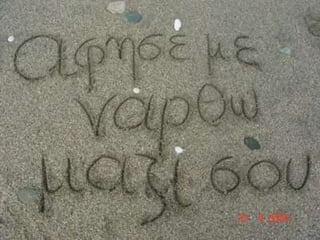 αφησε με
ναρθω
μαζι σου